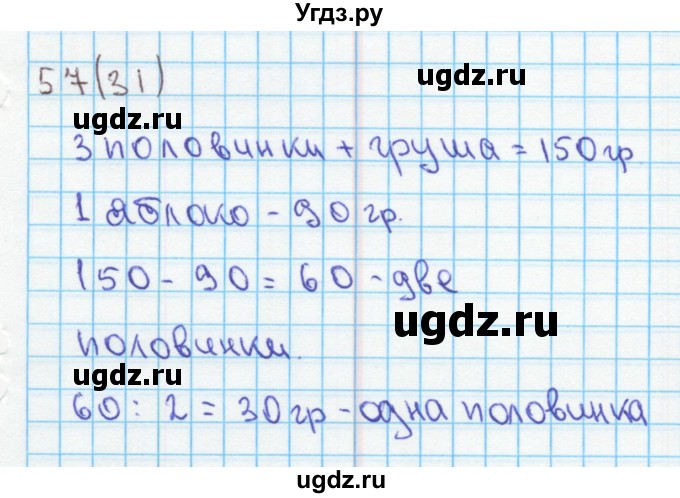 Угдз.ру
57(31)
ugdz.ru
ugdz.ru
3 половинки + груша = 150 гр
ugdz.ru
1 яблоко - 90 гр.
150 - 90 = 60 - две
ugdz.ru
половинки.
ugdz.ru
60 : 2 = 30 гр - одна половинка
ugdz.ru
ugdz.ru